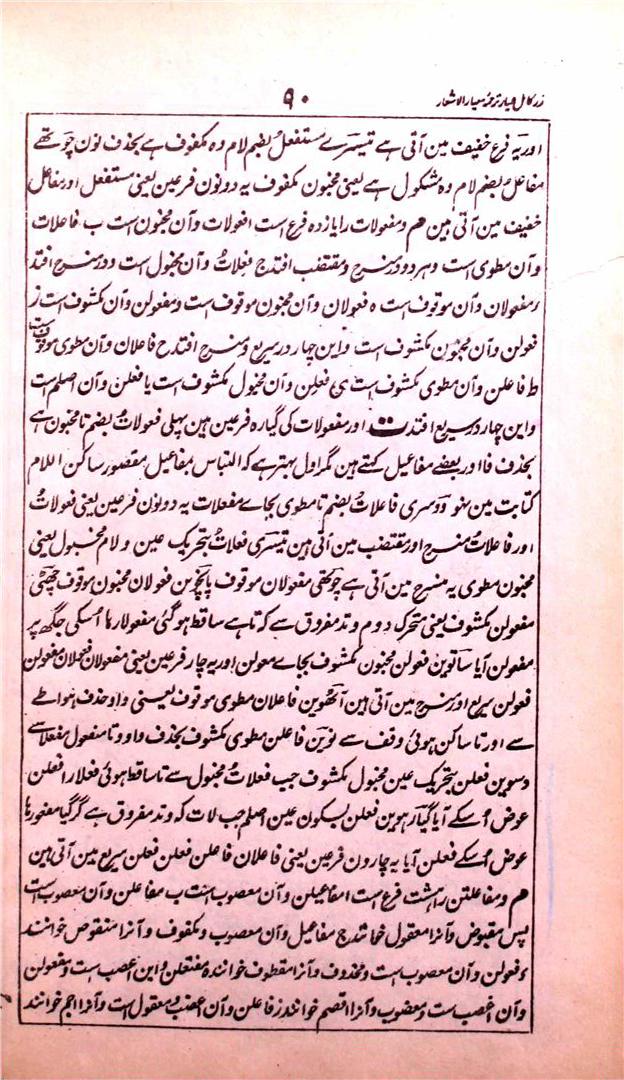 زر کامل عیار ترجمۂ معیار الاشعار
۹۰
اور یہ فرع خفیف مین آتی ہے تیسرے مستفعلُ بضم لام وہ مکفوف ہے بحذف نون چوتھے
مفاعلُ بضم لام وہ مشکول ہے یعنی مخبون مکفوف یہ دونون فرعین یعنی مستفعل اور مفاعل
خفیف مین آتی ہین ھم و مفعولات را یازدہ فرع است ا فعولات و آن مخبون ست ب فاعلات
و آن مطوی است و ہر دو در منسرح و مقتضب افتد ج فعلاتُ و آن مخبول ست و در منسرح افتد
د مفعولان و آن موقوف ست ہ فعولان و آن مخبون موقوف ست و مفعولن و آن مکشوف است ز
فعولن و آن مخبون مکشوف است و این چہار در سریع و منسرح افتد ح فاعلان و آن مطوی موقوف است
ط فاعلن و آن مطوی مکشوف است ی فعلن و آن مخبول مکشوف است یا فعلن و آن اصلم است
و این چہار در سریع افتد ت اور مفعولات کی گیارہ فرعین ہین پہلی فعولاتُ بضم تا مخبون ہے
بحذف فا اور بعضے مفاعیل کہتے ہین مگر اول بہتر ہے کہ التباس بمفاعیل مقصور ساکن اللام
کتابت مین نہو دوسری فاعلاتُ بضم تا مطوی بجاے مفعلات یہ دونون فرعین یعنی فعولاتُ
اور فاعلاتُ منسرح اور مقتضب مین آتی ہین تیسری فعلاتُ بتحریک عین و لام مخبول یعنی
مخبون مطوی یہ منسرح مین آتی ہے چوتھی مفعولان موقوف پانچوین فعولان مخبون موقوف چھٹی
مفعولن مکشوف یعنی متحرک دوم وتد مفروق سے کہ تا ہے ساقط ہو گئی مفعولا رہا اُسکی جگھ پر
مفعولن آیا ساتوین فعولن مخبون مکشوف بجاے معولن اور یہ چار فرعین یعنی مفعولان فعولان مفعولن
فعولن سریع اور منسرح مین آتی ہین آٹھوین فاعلان مطوی موقوف یعنی واو حذف ہوا طے
سے اور تا ساکن ہوئی وقف سے نوین فاعلن مطوی مکشوف بحذف واو و تا منقول مفعلا سے
دسوین فعلن بتحریک عین مخبول مکشوف جب فعلاتُ مخبول سے تا ساقط ہوئی فعلا رہا فعلن
عوض اُسکے آیا گیارھوین فعلن بسکون عین اصلم جب لات کہ وتد مفروق ہے گر گیا مفعو رہا
عوض اُسکے فعلن آیا یہ چارون فرعین یعنی فاعلان فاعلن فعلن فعلن سریع مین آتی ہین
ھم و مفاعلتن را ہشت فرع است ا مفاعیلن و آن معصوب است ب مفاعلن و آن معصوب است
پس مقبوض و آنرا معقول خوانند ج مفاعیل و آن معصوب و مکفوف و آنرا منقوص خوانند
د فعولن و آن معصوب ست و محذوف و آنرا مقطوف خوانند ہ مفتعلن و این اعصب ست و مفعولن
و آن اعصب ست و معصوب و آنرا اقصم خوانند ز فاعلن و آن اعضب و معقول ست و آنرا اجم خوانند